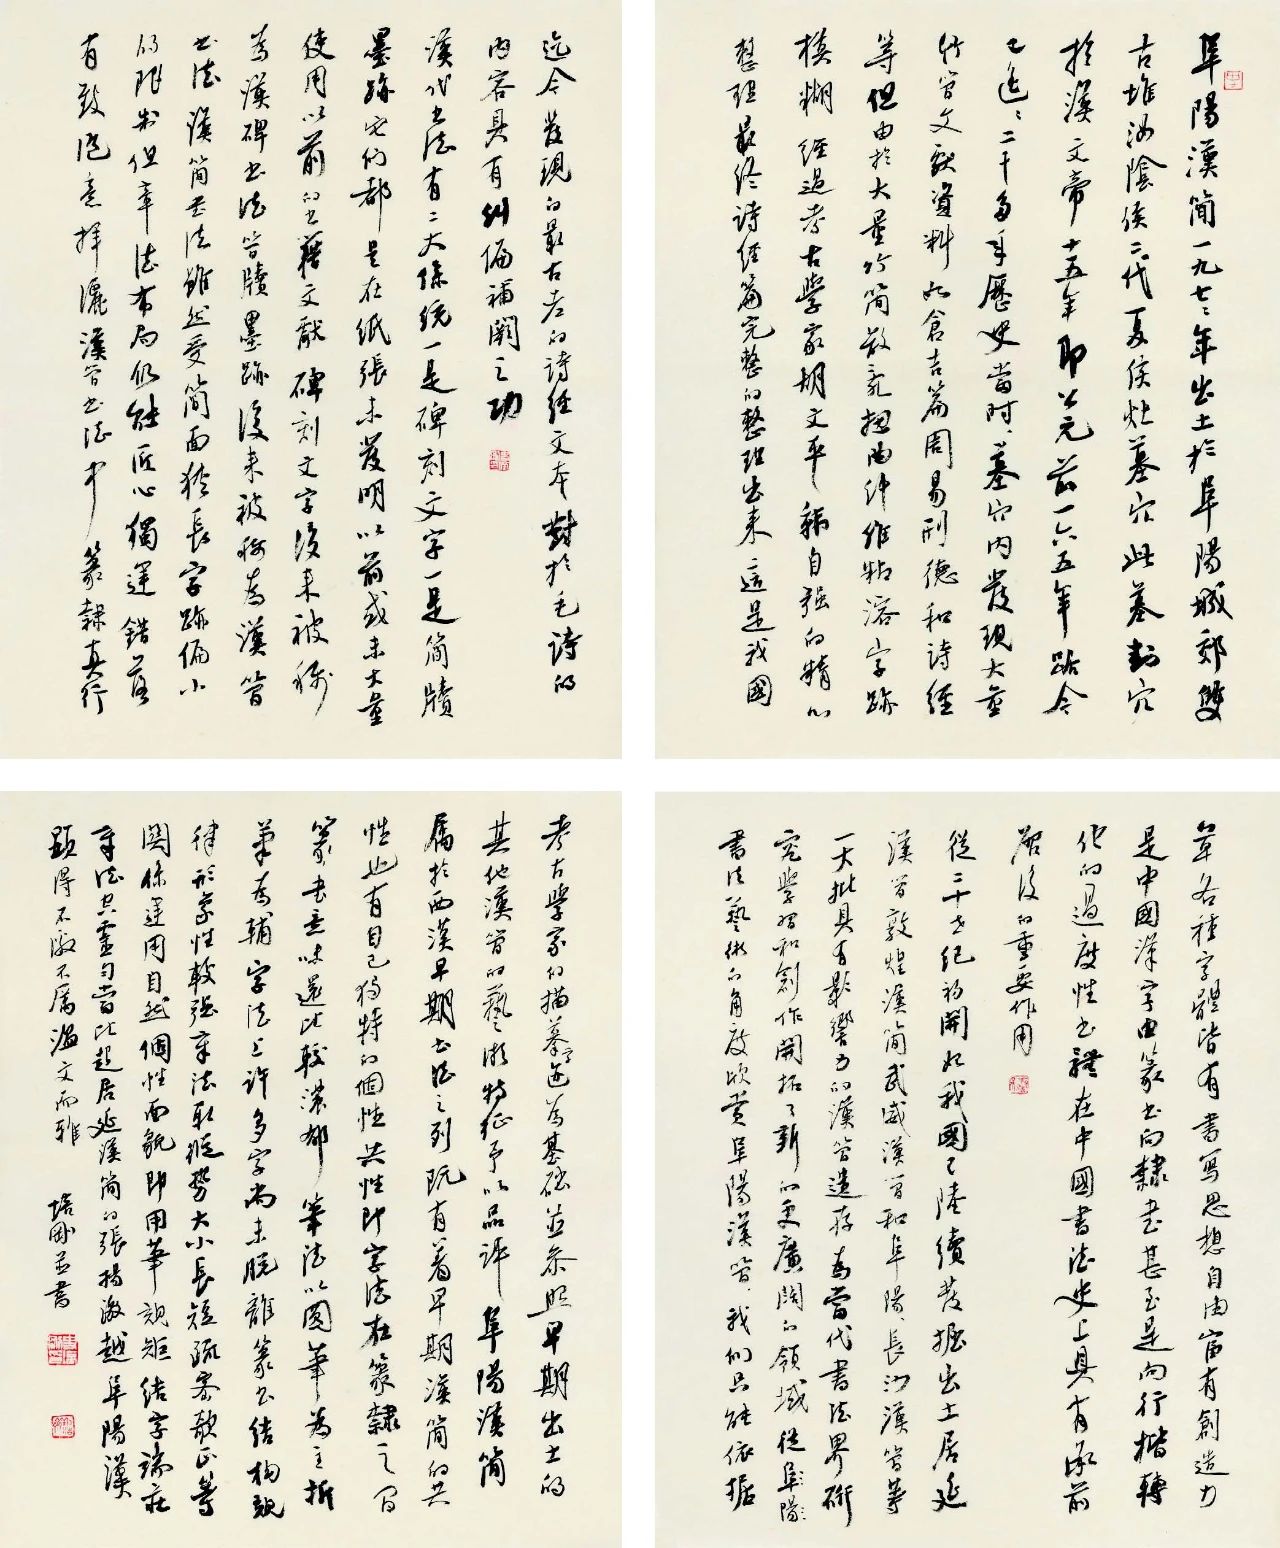 阜陽漢簡一九七七年出土於阜陽城郊雙
古堆汝陰侯二代夏侯灶墓穴此墓封穴
於漢文帝十五年即公元前一六五年距今
已遙遙二千多年歷史當時墓穴内發現大量
竹簡文獻資料如倉吉篇周易刑德和詩經
等但由於大量竹簡散亂扭曲纖維粘溶字跡
模糊經過考古學家胡文平韓自强的精心
整理最終詩經篇完整的整理出来這是我國
迄今發現的最古老的詩經文本對於毛詩的
内容具有糾偏補闕之功
漢代書法有二大係統一是碑刻文字一是簡牘
墨跡它们都是在紙張未發明以前或未大量
使用以前的書籍文獻碑刻文字後来被称
為漢碑書法簡牘墨跡後来被称為漢簡
書法漢簡書法雖然受簡面狹長字跡偏小
的限制但章法布局仍能匠心獨運錯落
有致恣意揮灑漢簡書法中篆隸真行
草各種字體皆有書寫思想自由富有創造力
是中國漢字由篆書向隸書甚至是向行楷轉
化的過度性書體在中國書法史上具有承前
啟後的重要作用
從二十世纪初開始我國已陸續發掘出土居延
漢簡敦煌漢簡武威漢簡和阜陽長沙漢簡等
一大批具有影響力的漢簡遺存為當代書法界研
究學習和創作開拓了新的更廣闊的領域從阜陽
書法藝術的角度欣賞阜陽漢簡我们只能依據
考古學家的描摹字迹為基础並參照早期出土的
其他漢簡的藝術特征予以品評阜陽漢簡
屬於西漢早期書法之列既有着早期漢簡的共
性也有自己獨特的個性共性即字法在篆隸之間
篆書意味還比較濃郁筆法以圓筆為主折
筆為輔字法上许多字尚未脱離篆書结构規
律形象性較强章法取縱勢大小長短疏密欹正等
関係運用自然個性面貌即用筆規矩结字端莊
章法空靈匀當比起居延漢簡的張揚激越阜陽漢
顕得不激不厲温文而雅 培剛並書